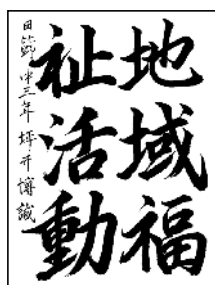 地域福
祉活動
日節中三年 坪井博誠